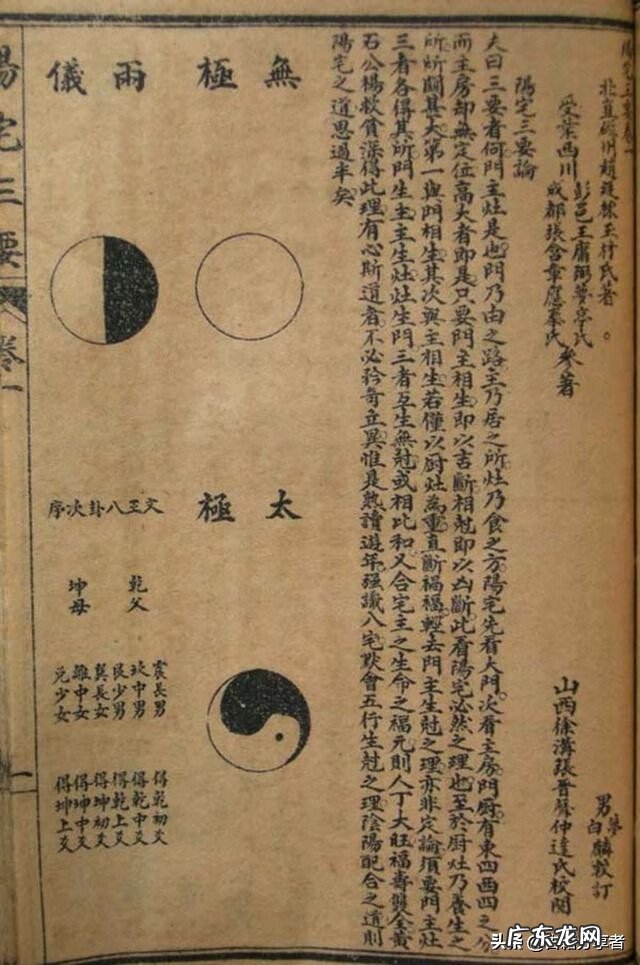 北直磁州趙廷棟玉材氏著
受業西川
彭邑王庸弼夢亭氏
成都張含章應奉氏
參著
山西徐溝張晉蘇仲達氏校閱
男夢
白
麟校訂
陽宅三要論
夫曰三要者何門主灶是也門乃由之路主乃居之所灶乃食之方陽宅先看大門次看主房門厨有東四西四之分
而主房却無定位高大者即是只要門主相生即以吉斷相尅即以凶斷此看陽宅必然之理也至於厨灶乃養生之
所所關甚大第一與門相生其次與主相生若僅以厨灶為重直斷禍福輕去門主生尅之理亦非定論須要門主灶
三者各得其所門生主主生灶灶生門三者互生無尅或相比和又合宅主之生命之福元則人丁大旺福壽雙全黃
石公楊救貧深得此理有心斯道者不必矜奇立異惟是熟讀遊年强識八宅默會五行生尅之理陰陽配合之道則
陽宅之道思過半矣
無極
兩儀
太極
文王八卦次序
乾父
坤母
震長男 得乾初爻
坎中男 得乾中爻
艮少男 得乾上爻
巽長女 得坤初爻
離中女 得坤中爻
兌少女 得坤上爻
陽宅三要
卷一
一
头条
分享者
广东龙网
www.gdlon.com